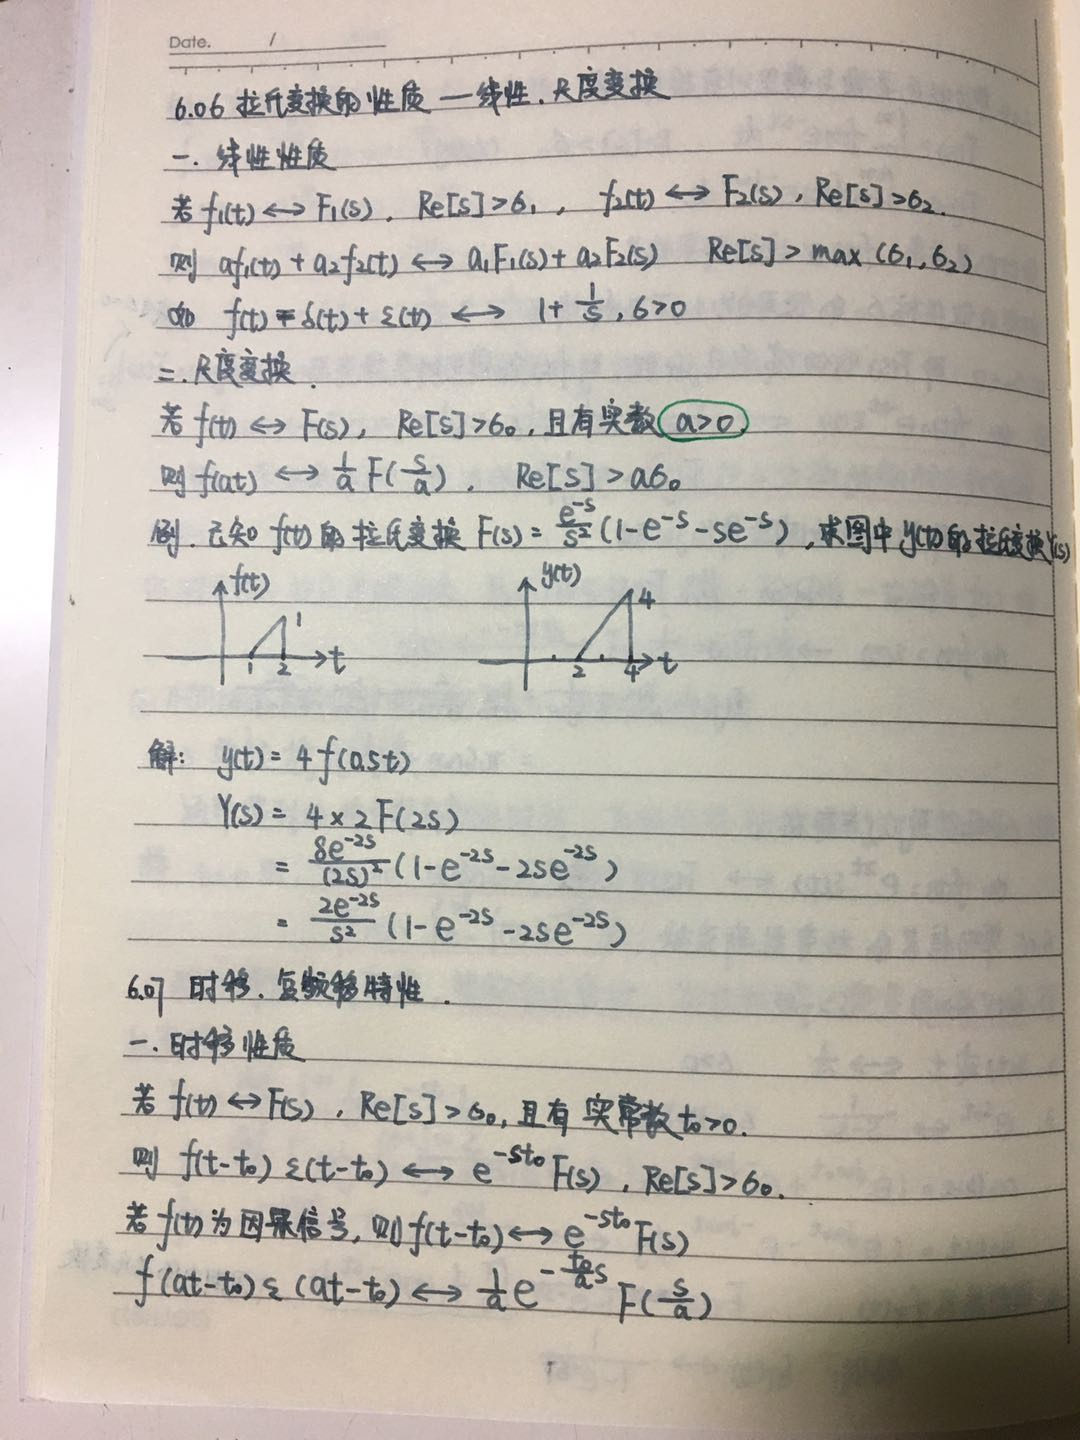 Date. /
6.06 拉氏变换的性质 — 线性、尺度变换
一. 线性性质
若 f₁(t) ↔ F₁(s), Re[s]>σ₁, f₂(t) ↔ F₂(s), Re[s]>σ₂.
则 af₁(t) + a₂f₂(t) ↔ a₁F₁(s) + a₂F₂(s) Re[s] > max (σ₁, σ₂)
如 f(t) = δ(t) + ε(t) ↔ 1 + 1/s, σ>0
二. 尺度变换.
若 f(t) ↔ F(s), Re[s]>σ₀, 且有实数 a>0
则 f(at) ↔ 1/a F(s/a), Re[s] > aσ₀
例. 已知 f(t) 的拉氏变换 F(s) = e^(-s)/s² (1-e^(-s)-se^(-s)), 求图中 y(t) 的拉氏变换 Y(s)
f(t) 1 1 2 t
y(t) 4 2 4 t
解: y(t) = 4 f(0.5t)
Y(s) = 4 × 2 F(2s)
= 8e^(-2s)/(2s)² (1-e^(-2s)-2se^(-2s))
= 2e^(-2s)/s² (1-e^(-2s)-2se^(-2s))
6.07 时移、复频移特性.
一. 时移性质
若 f(t) ↔ F(s), Re[s]>σ₀, 且有实常数 t₀>0.
则 f(t-t₀) ε(t-t₀) ↔ e^(-st₀) F(s), Re[s]>σ₀.
若 f(t) 为因果信号, 则 f(t-t₀) ↔ e^(-st₀) F(s)
f(at-t₀) ε(at-t₀) ↔ 1/a e^(-(t₀/a)s) F(s/a)